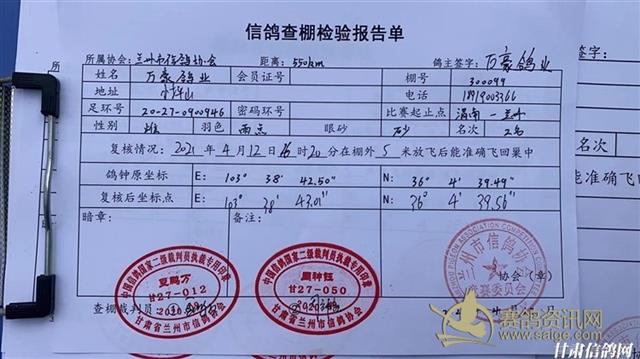 信鸽查棚检验报告单
所属协会: 兰州市信鸽协会 距离: 550km 鸽主签字: 万豪鸽业
姓名 万豪鸽业 会员证号 棚号 300099
地址 电话 18919003366
足环号 20-27-0900946 密码环号 比赛起止点 渭南—兰州
性别 雄 羽色 雨点 眼砂 砂 名次
复核情况: 2021年4月12日16时20分在棚外5米放飞后能准确飞回巢中
鸽钟原坐标 E: 103° 38' 42.50" N: 36° 4' 39.49"
复核后坐标点 E: 103° 38' 43.01" N: 36° 4' 39.56"
暗章: 备注:
中国信鸽国家二级裁判员执裁专用印章
甘27-012
甘肃省兰州市信鸽协会
中国信鸽国家二级裁判员执裁专用印章
甘27-050
甘肃省兰州市信鸽协会
查棚裁判员
兰州市信鸽协会
竞赛委员会
协会(章)
签字:
名次
能准确飞回
赛鸽资讯网
www.saige.com
甘肃信鸽网